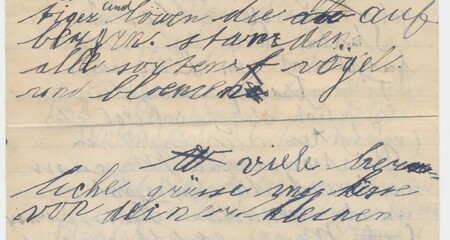 tiger und löwen die auf
bergen. standen
alle sorten vögel
und bloemen
viele herz-
liche grüsse und küsse
von deiner kleinen